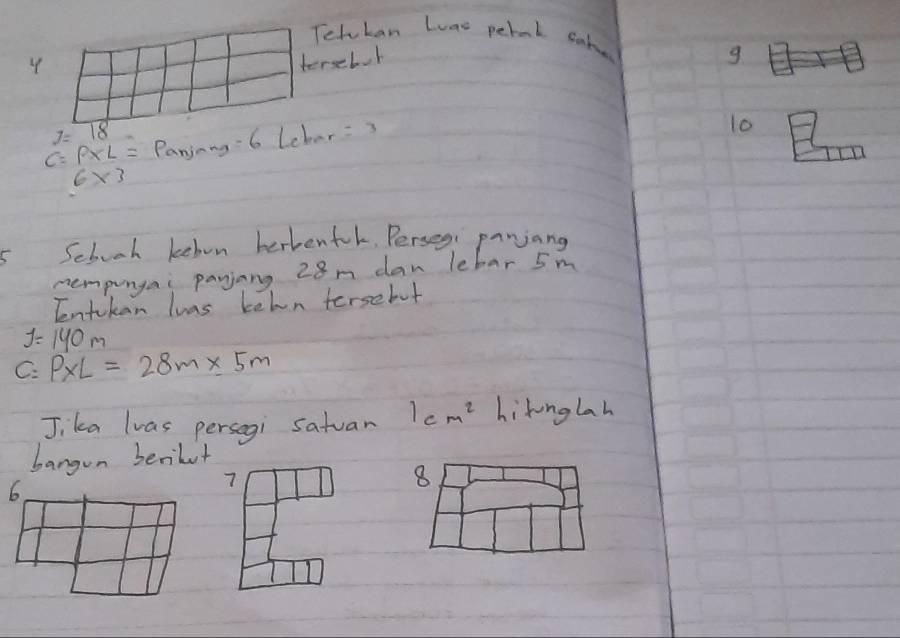 4 Tetukan Luas petak
tersebut
J= 18
C= PxL = Panjang = 6 Lebar = 3
6 x 3
5 Sebuah kebun berbentuk Persegi panjang
mempunyai panjang 28 m dan lebar 5 m
Tentukan luas kebun tersebut
J= 140 m
C: PxL = 28m x 5m
Jika luas persegi satuan 1 cm² hitunglah
bangun berikut
6 7 8
9
10